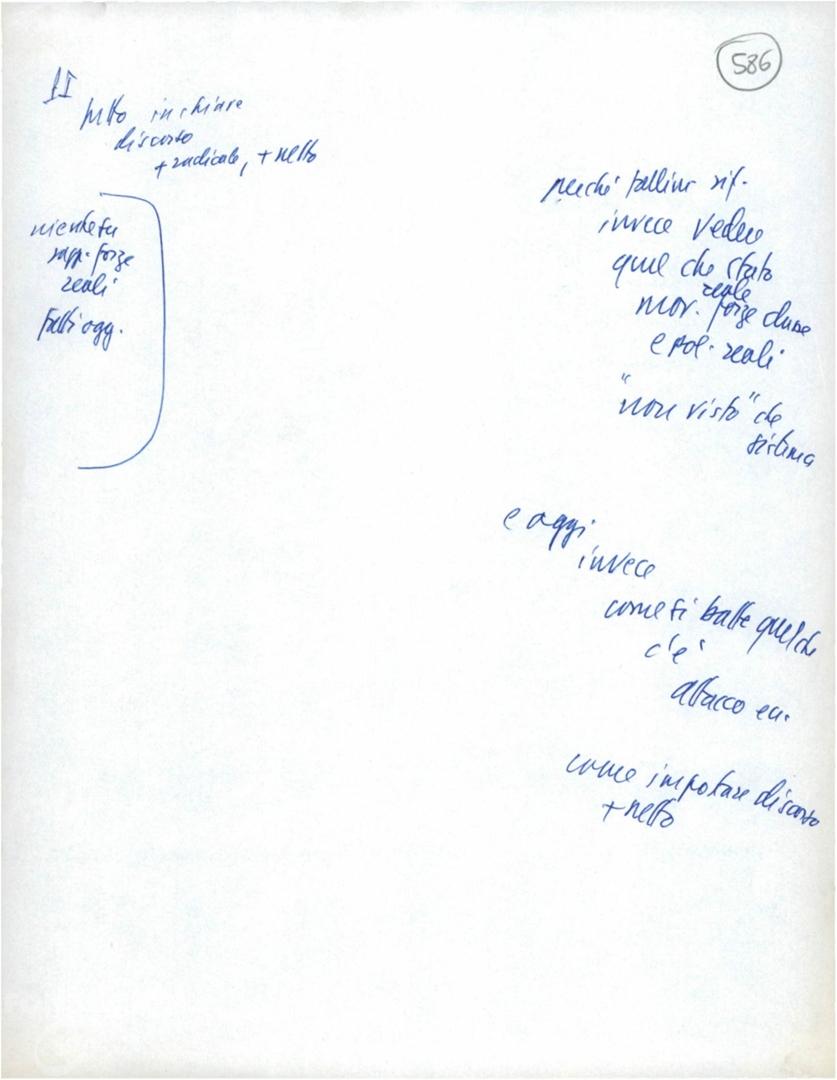 586
II
tutto in chiave
discorso
+ radicale, + netto
niente su
rapp. forze
reali
fatti ogg.
perché fallim. rif.
invece vedere
quel che stato
reale
mov. forze
e pol. reali
"non visto" che
sistema
e oggi
invece
come si batte quel che
c'è
attacco ec.
come impostare discorso
+ netto